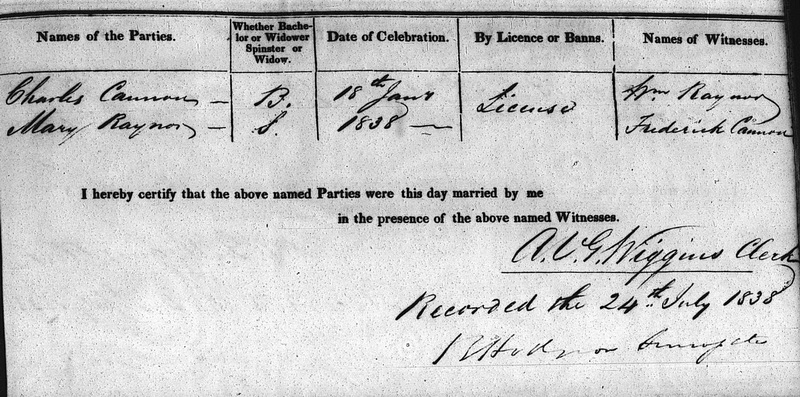 Names of the Parties. Whether Bachelor or Widower Spinster or Widow. Date of Celebration. By Licence or Banns. Names of Witnesses.
Charles Cannon — B. 18th Jany License Wm Raynor
Mary Raynor — S. 1838 — Frederick Cannon
I hereby certify that the above named Parties were this day married by me
in the presence of the above named Witnesses.
A. V. G. Wiggins Clerk
Recorded the 24th July 1838